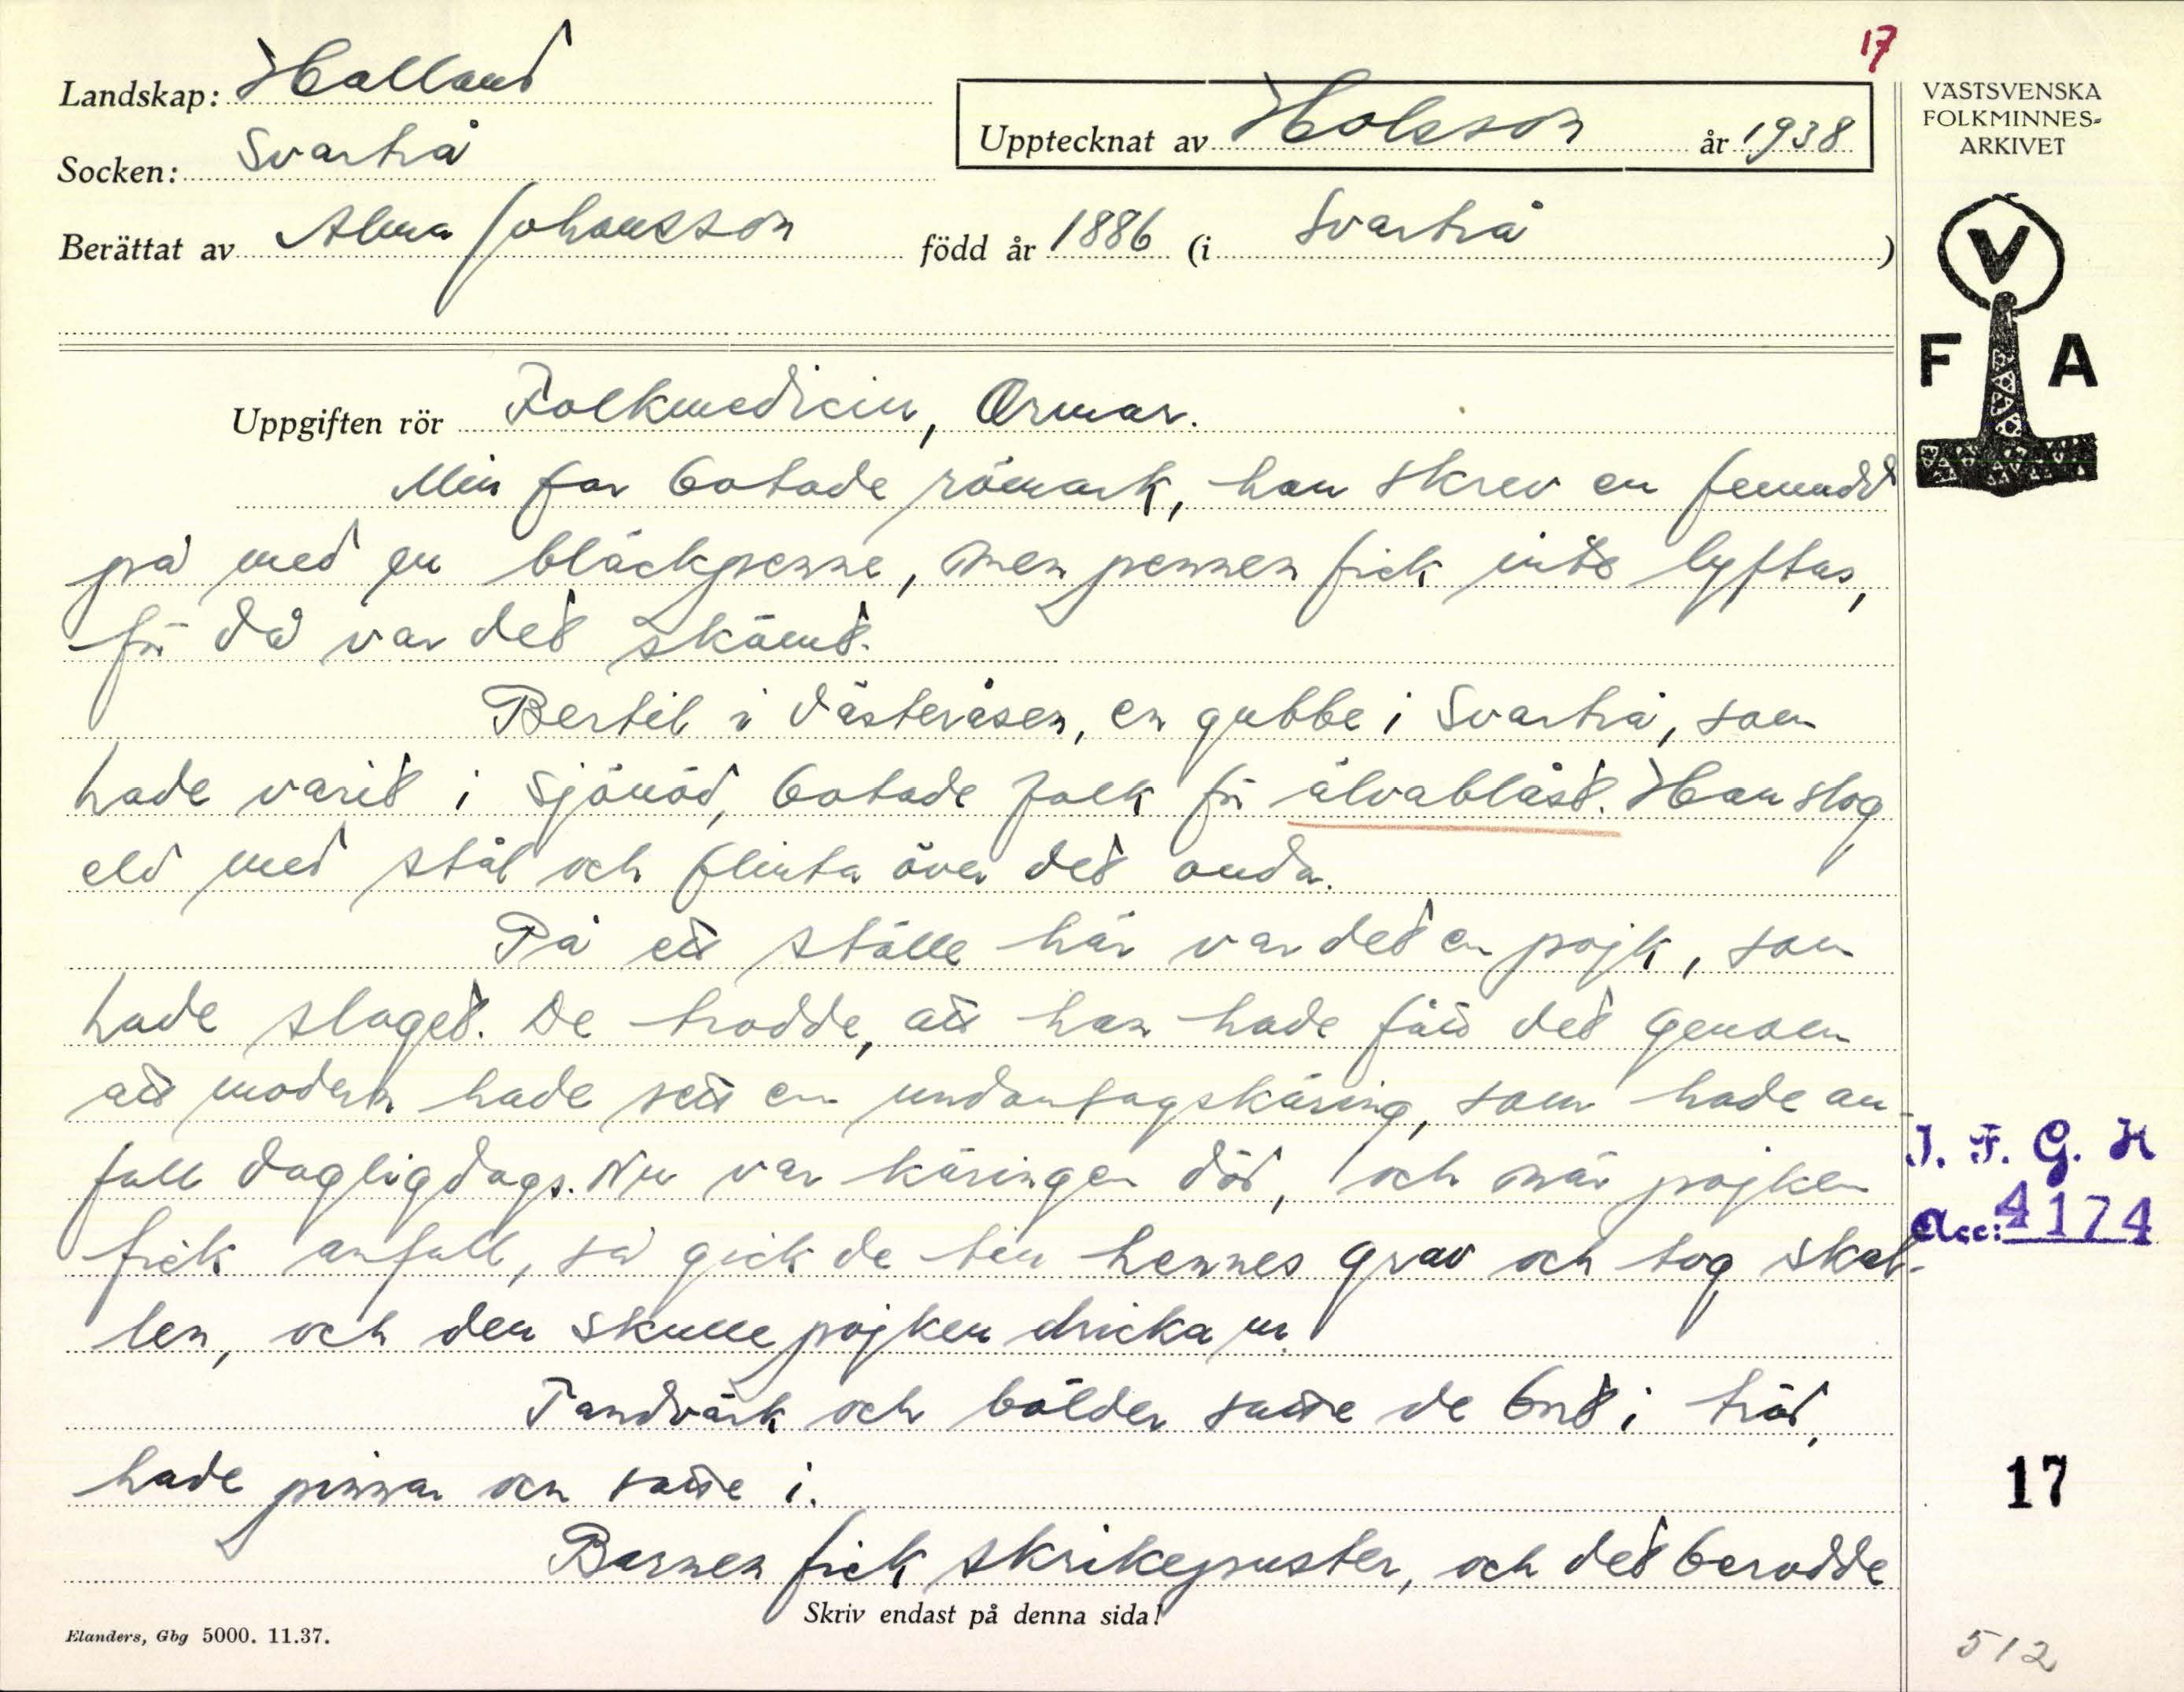 17
Landskap: Halland
Socken: Svartrå
Upptecknat av Holsson år 1938
Berättat av Alma Johansson född år 1886 (i Svartrå )
VÄSTSVENSKA
FOLKMINNES-
ARKIVET
V
F A
Uppgiften rör Folkmedicin, Ormar.
Min far botade römark, han skrev en femudd
på med en bläckpenne, men pennen fick inte lyftas,
för då var det skämt.
Bertil i Västeråsen, en gubbe i Svartrå, som
hade varit i sjönöd, botade folk för älvablåst. Han slog
eld med stål och flinta över det onda.
På ett ställe här var det en pojk, som
hade slaget. De trodde, att han hade fått det genom
att modern hade sett en undantagskäring, som hade an-
fall dagligdags. Nu var käringen död, och när pojken
fick anfall, så gick de till hennes grav och tog skal-
len, och den skulle pojken dricka ur.
Tandvärk och bölder satte de bort i träd,
hade pinnar och satte i.
Barnen fick skrikepuster, och det berodde
J. F. G. H
Acc: 4174
17
Skriv endast på denna sida!
Elanders, Gbg 5000. 11.37.
512